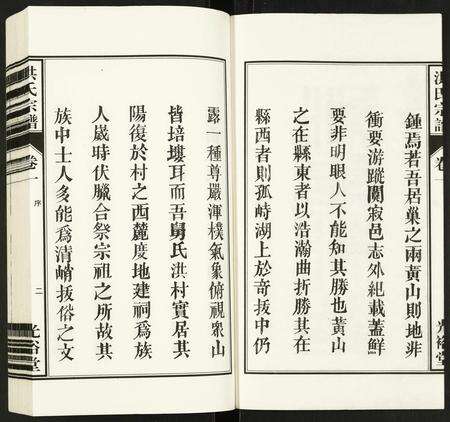 洪氏宗譜
卷一
鍾焉若吾居巢之兩黃山則地非
衝要游蹤闃寂邑志外紀載蓋鮮
要非明眼人不能知其勝也黃山
之在縣東者以浩瀚曲折勝其在
縣西者則孤峙湖上於奇拔中仍
露一種尊嚴渾樸氣象俯視衆山
皆培塿耳而吾舅氏洪村實居其
陽復於村之西麓度地建祠爲族
人歲時伏臘合祭宗祖之所故其
族中士人多能爲清峭拔俗之文
洪氏宗譜
卷一
序
二
光裕堂